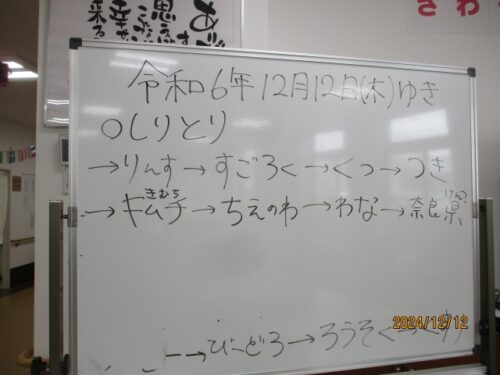 さわ
令和6年12月12日(木)ゆき
○しりとり
→りんす→すごろく→くつ→つき
→キムチ→ちえのわ→わな→奈良県
きむち
けん
→びーどろ→ろうそく→
2024/12/12